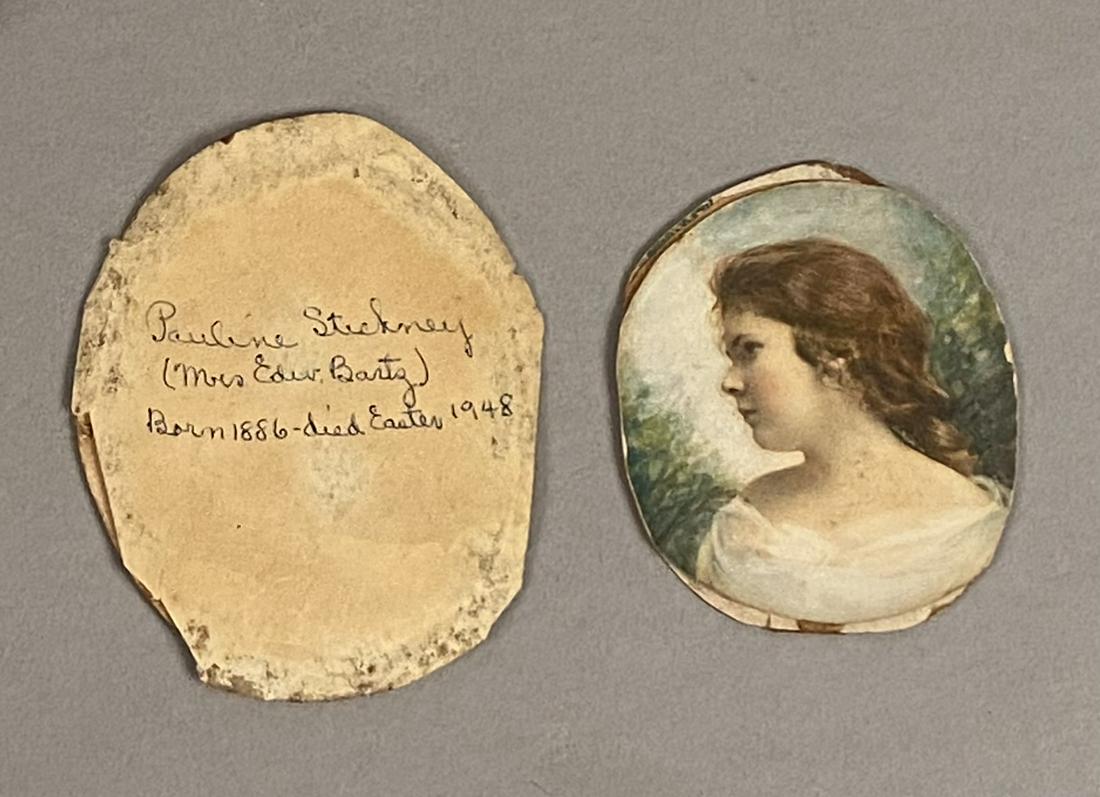 Pauline Stickney
(Mrs Edw. Bartz)
Born 1886-died Easter 1948